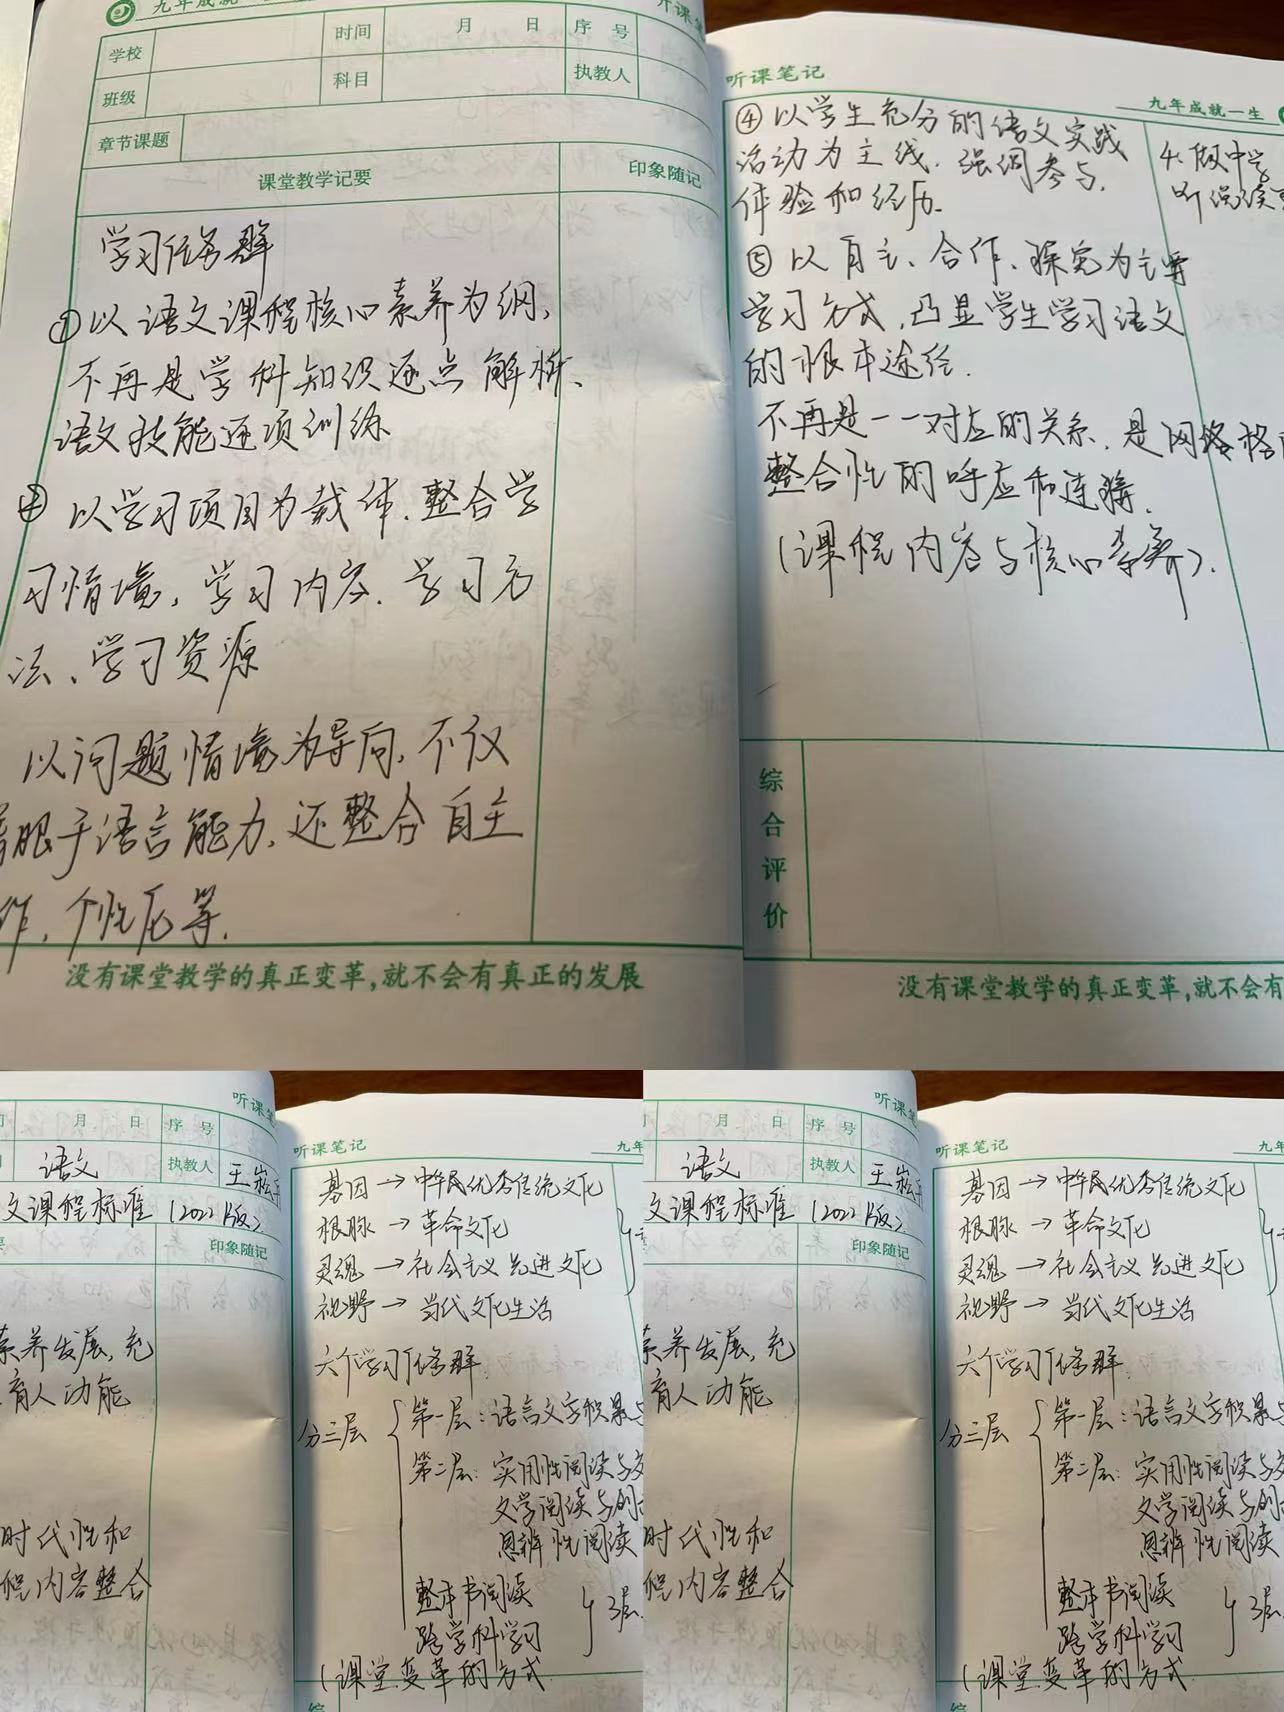 九年成就一
听课笔
学校
时间
月 日
序 号
班级
科目
执教人
章节课题
课堂教学记要
印象随记
学习任务群
①以语文课程核心素养为纲,
不再是学科知识逐点解析、
语文技能逐项训练
② 以学习项目为载体.整合学
习情境,学习内容.学习方
法、学习资源
以问题情境为导向.不仅
着眼于语言能力.还整合自主
作.个性化等.
没有课堂教学的真正变革,就不会有真正的发展
听课笔记
九年成就一生
④以学生充分的语文实践
活动为主线.强调参与.
体验和经历.
4.做中学
听说读
⑤以自主、合作、探究为主导
学习方式,凸显学生学习语文
的根本途径.
不再是一一对应的关系.是网络格
整合性的呼应和连接.
(课程内容与核心素养).
综合评价
没有课堂教学的真正变革,就不会有
听课笔
月 日
序 号
语文
执教人
文课程标准(2022版)
印象随记
素养发展,充
育人功能
时代性和
程内容整合
听课笔记
九年
基因→中华民族优秀传统文化
根脉→革命文化
灵魂→社会主义先进文化
视野→当代文化生活
六个学习任务群
分三层
第一层:语言文字积累与
第二层:实用性阅读与交
文学阅读与创
思辨性阅读
整本书阅读
跨学科学习
3层
(课堂变革的方式
综
听课笔
月 日
序 号
语文
执教人
文课程标准(2022版)
印象随记
素养发展,充
育人功能
时代性和
程内容整合
听课笔记
九年
基因→中华民族优秀传统文化
根脉→革命文化
灵魂→社会主义先进文化
视野→当代文化生活
六个学习任务群
分三层
第一层:语言文字积累与
第二层:实用性阅读与交
文学阅读与创
思辨性阅读
整本书阅读
跨学科学习
3层.
(课堂变革的方式
综